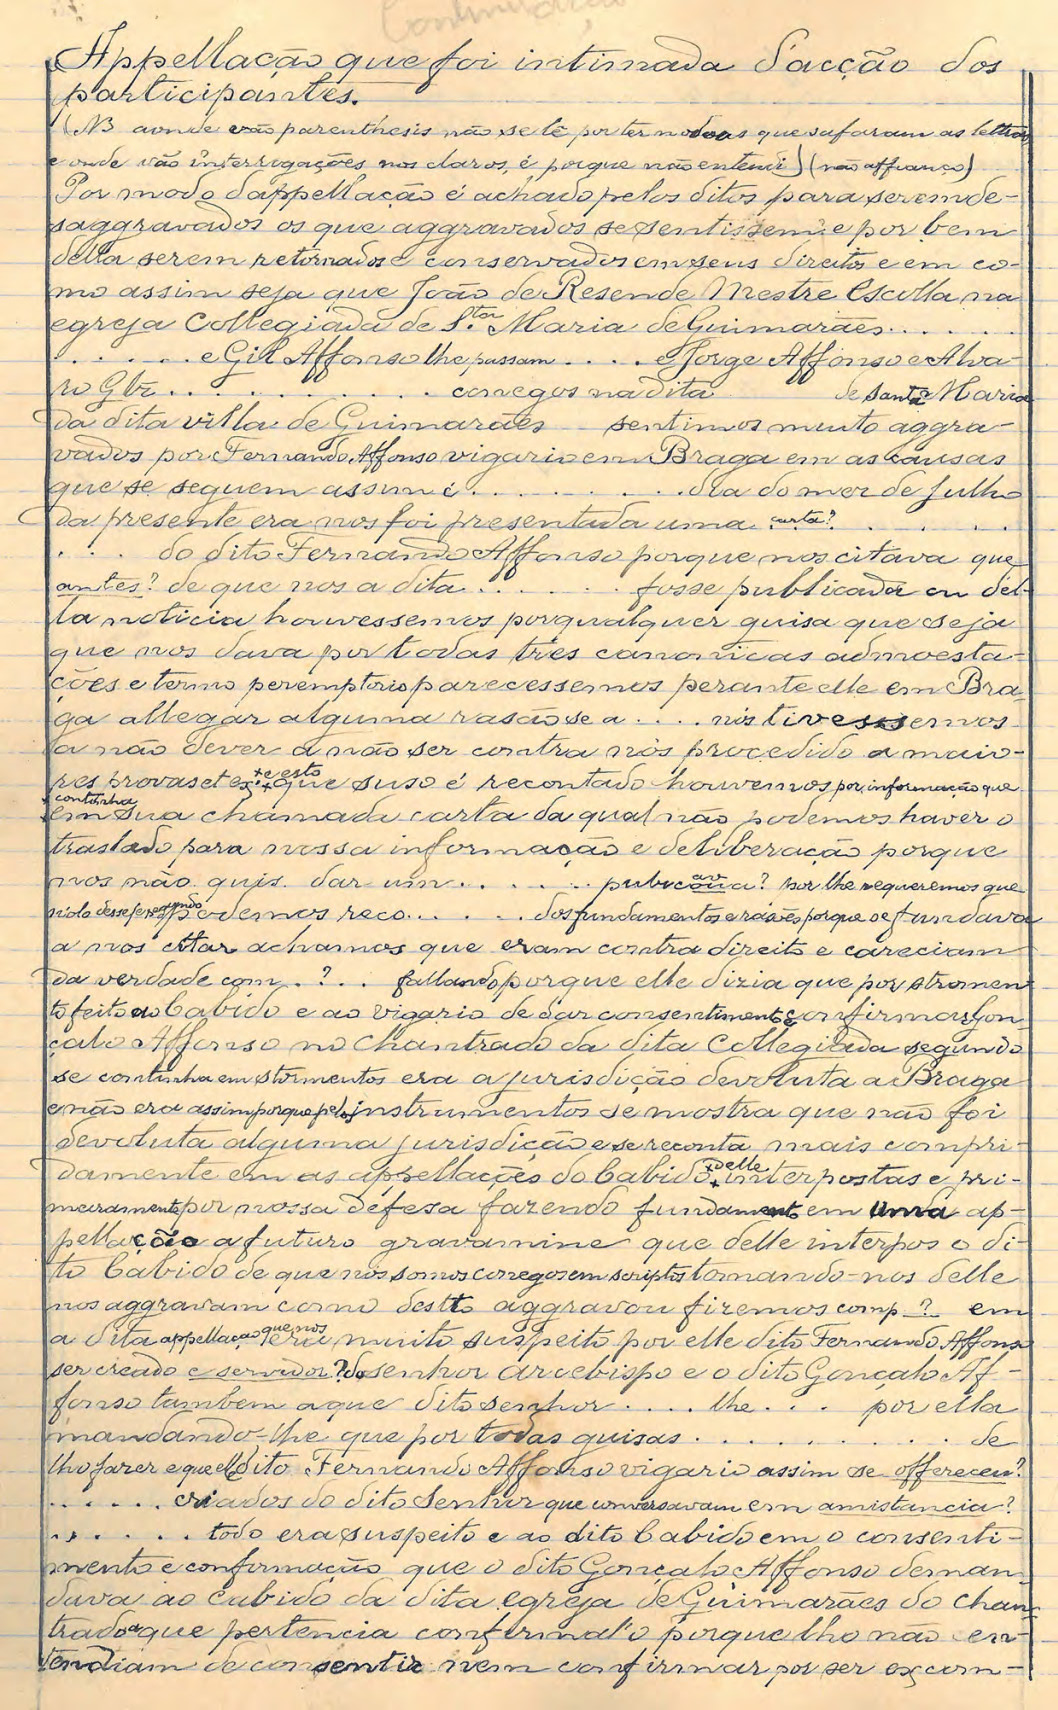 Continuação
Appellação que foi intimada d'acção dos
participantes.
(NB aonde vão parenthesis não se lê por ter nodoas que safaram as lettras
e onde vão interrogações nos claros, é porque não entendi) (não affianço)
Por modo d'appellação é achado pelos ditos para serem de-
saggravados os que aggravados se sentissem e por bem
della serem retornados e conservados em seus direitos e em co-
mo assim seja que João de Resende Mestre Escolla na
egreja Collegiada de S.ta Maria de Guimarães......
...... e Gil Affonso lhe passam .... e Jorge Affonso e Alva-
ro Glz ............ conegos na dita de Santa Maria
da dita villa de Guimarães sentimos muito aggra-
vados por Fernando Affonso vigario em Braga em as causas
que se seguem assim é .......... dia do mez de Julho
da presente era nos foi presentada uma carta? .....
... do dito Fernando Affonso porque nos citava que
antes? de que nos a dita ...... fosse publicada ou del-
la noticia houvessemos por qualquer guisa que seja
que nos dava por todas tres canonicas admoesta-
ções e termo peremptorio parecessemos perante elle em Bra-
ga allegar alguma rasão se a .... nós tivessemos
a não dever a não ser contra nós procedido a maio-
res provas et ex. ++ e esto que suso é recontado houvemos por informação que
+ continha em sua chamada carta da qual não podemos haver o
traslado para nossa informação e deliberação porque
nos não quis dar um ...... publicou a? por lhe requeremos que
nolo desse segundo podemos reco...... dos fundamentos e rasões porque se fundava
a nos citar achamos que eram contra direito e careciam
da verdade com . ? .. fallando porque elle dizia que por stromen
to feito ao Cabido e ao vigario de dar consentimento e confirmar Gon
çalo Affonso no Chantrado da dita Collegiada segundo
se continha em stormentos era a jurisdição devoluta a Braga
e não era assim porque pelos instrumentos se mostra que não foi
devoluta alguma jurisdição e se reconta mais compri-
damente em as appellações do Cabido + delle interpostas e pri-
meiramente por nossa defesa fazendo fundamento em uma ap-
pellação a futuro gravamine que delle interpos o di-
to Cabido de que nós somos conegos em scriptos tomando-nos delle
nos aggravam como deste aggravou firemos comp_?_ em
a dita appellação que nos era muito suspeito por elle dito Fernando Affonso
ser creado e servidor? do senhor Arcebispo e o dito Gonçalo Af-
fonso tambem a que dito senhor .... lhe ... por ella
mandando-lhe que por todas guisas .......... de
lho fazer e que elle dito Fernando Affonso vigario assim se offereceu?
...... criados do dito Senhor que conversavam em amistancia?
...... todo era suspeito e ao dito Cabido em o consenti-
mento e confirmação que o dito Gonçalo Affonso deman-
dava ao Cabido da dita egreja de Guimarães do chan-
trado a que pertencia confirmal'o porque lho não en-
tendiam de consentir nem confirmar por ser excom-